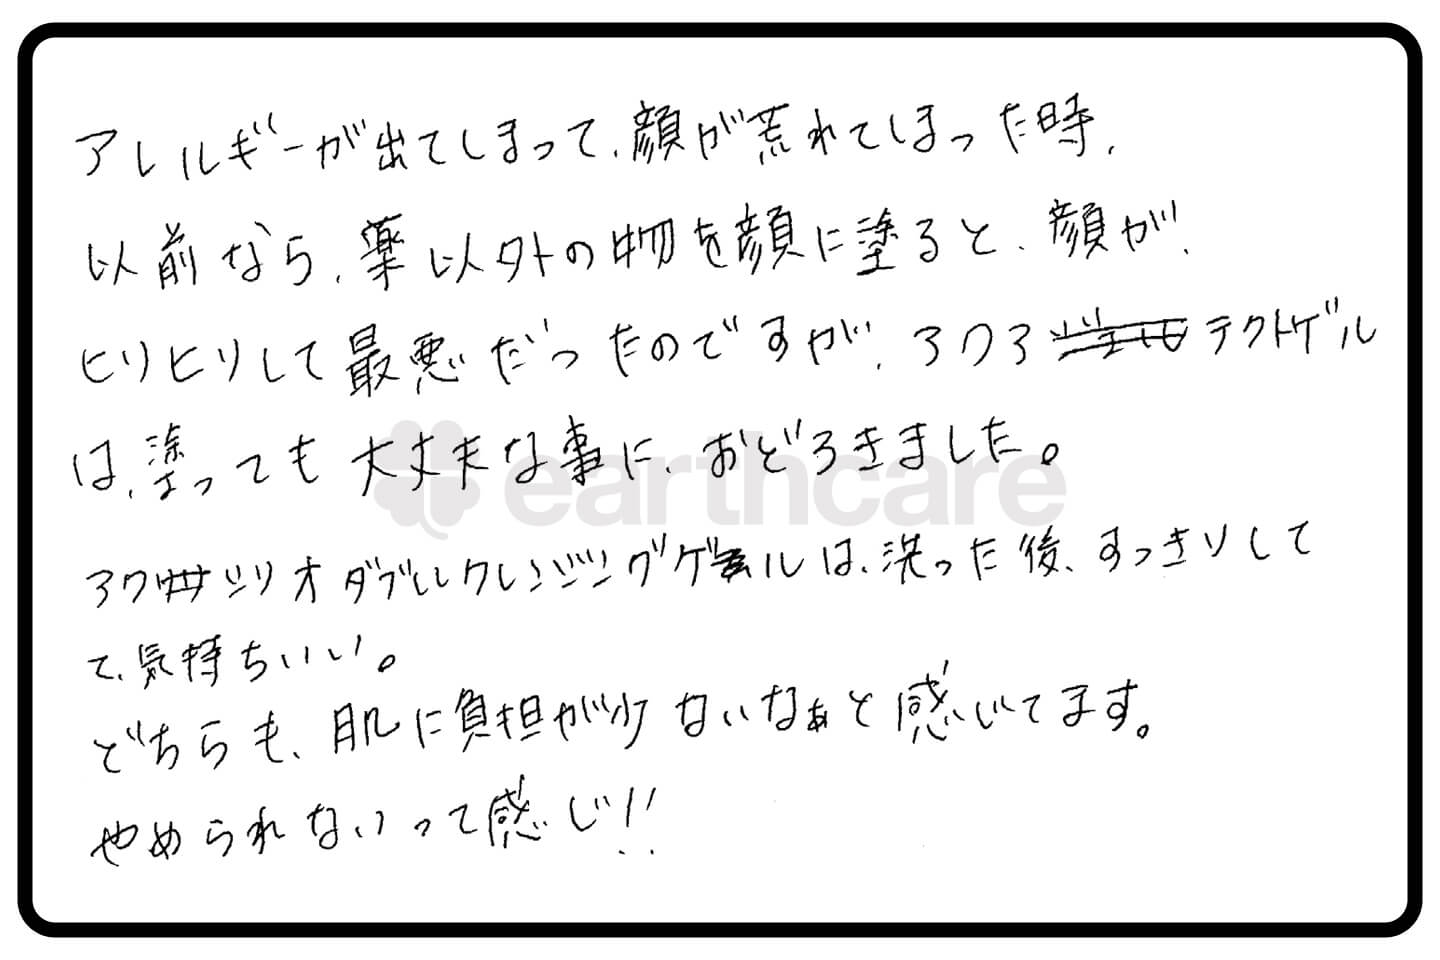 アレルギーが出てしまって、顔が荒れてしまった時、
以前なら、薬以外の物を顔に塗ると、顔が、
ヒリヒリして最悪だったのですが、アクアテクトゲル
は、塗っても大丈夫な事に、おどろきました。
earthcare
アクソリオダブルクレンジングゲルは、洗った後、すっきりして
て、気持ちいい。
どちらも、肌に負担が少ないなぁと感じてます。
やめられないって感じ!!